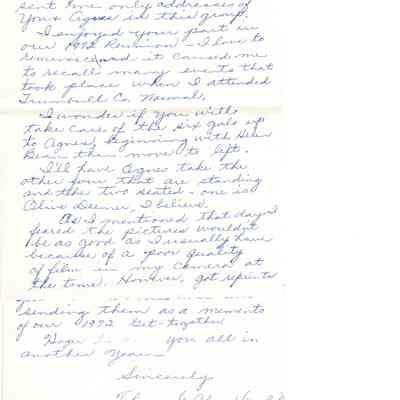 sent me only addresses of
You & Agnes in this group.
I enjoyed your part in
our 1972 Reunion - I love to
reminesce and it caused me
to recall many events that
took place when I attended
Trumbull Co. Normal.
I wonder if you with
take care of the six gals up
to Agnes, beginning with
Bear then move to left.
I'll have Agnes take the
other four that are standing
and the two seated - one is
Olive Deemer, I believe.
As I mentioned that day I
feared the pictures wouldn't
be as good as I usually have
because of a poor quality
of film in my camera at
the time. However, got reprints
sending them as a memento
of our 1972 Get-together
Hope you all in
another Year -
Sincerely